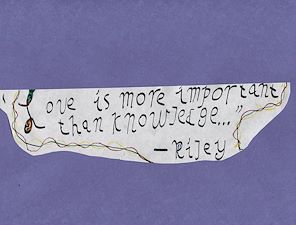 Love is more important
than knowledge..."
— Riley